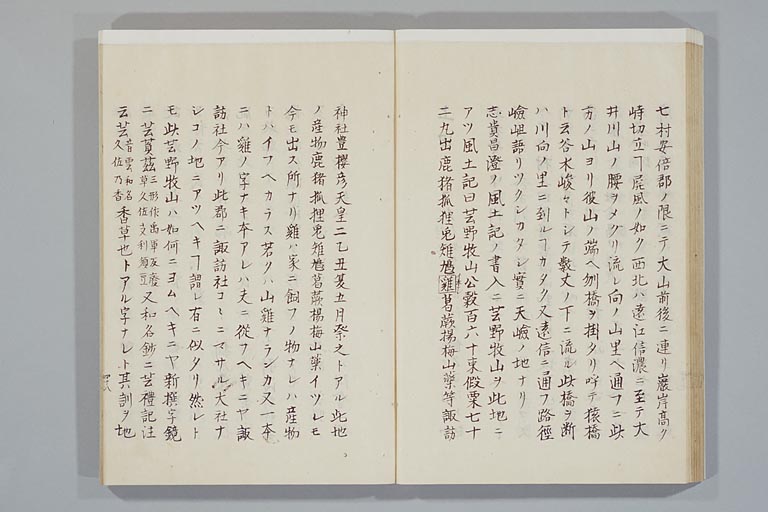 七村安倍郡ノ限ニテ大山前後ニ連リ巖岸高ク
峙切立テ屏風ノ如ク西北ハ遠江信濃ニ至テ大
井川山ノ腰ヲメクリ流レ向ノ山里ヘ通フニ此
方ノ山ヨリ彼山ノ端ヘ刎橋ヲ掛タリ呼テ猿橋
ト云谷水峻々トシテ數丈ノ下ニ流ル此橋ヲ断
ハ川向ノ里ニ到ルヿカタク又遠信ニ通フ路徑
嶮岨語リツクシカタシ實ニ天嶮ノ地ナリ
志貴昌澄ノ風土記ノ書入ニ芸野牧山ヲ此地ニ
アツ風土記曰芸野牧山公穀百六十束假粟七十
二丸出鹿猪狐狸兎雉鳩雞葛蕨楊梅山藥等諏訪
神社豊櫻彦天皇二乙丑夏五月祭之トアル此地
ノ産物鹿猪狐狸兎雉鳩葛蕨楊梅山藥イツレモ
今モ出ス所ナリ雞ハ家ニ飼フノ物ナレハ産物
トハイフヘカラス若クハ山雞ナランカ又一本
ニハ雞ノ字ナキ本アレハ夫ニ從フヘキニヤ諏
訪社今アリ此郡ニ諏訪社コヽニマサル大社ナ
シコノ地ニアツヘキヿ謂レ有ニ似タリ然レト
モ此芸野牧山ハ如何ニヨムヘキニヤ新撰字鏡
ニ芸蒷茲三形作啚軍友廢草久佐支利須豆又和名鈔ニ芸禮記注
云芸音雲和名久佐乃香香草也トアル字ナレト其訓ヲ地